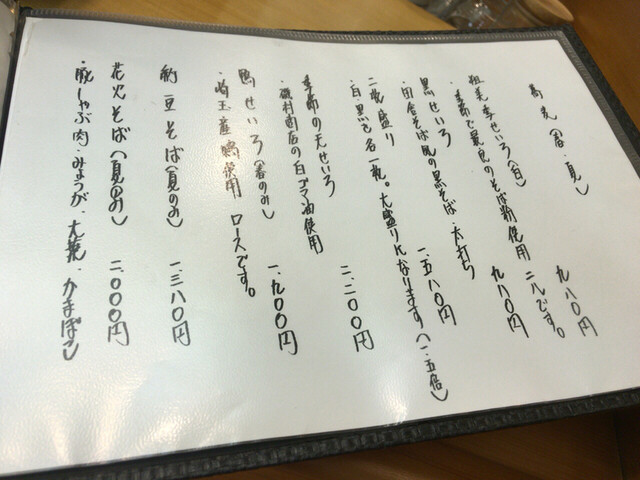 (春・夏) 九八〇円
粗美季せいろ(白) 九八〇円
・季節で最良のそば粉使用 二八です。
黒せいろ
・田舎そば風の黒そば・太打ち
二色盛り 一、五八〇円
・白・黒を各一枚。大盛りになります(一・五倍)
季節の天せいろ 二、二〇〇円
・磯村商店の白ゴマ油使用
鴨せいろ(春のみ) 一、九〇〇円
・埼玉産鴨使用 ロースです。
納豆そば(夏のみ) 一、三八〇円
花火そば(夏のみ) 二、〇〇〇円
・豚しゃぶ肉・みょうが・大葉・かまぼこ